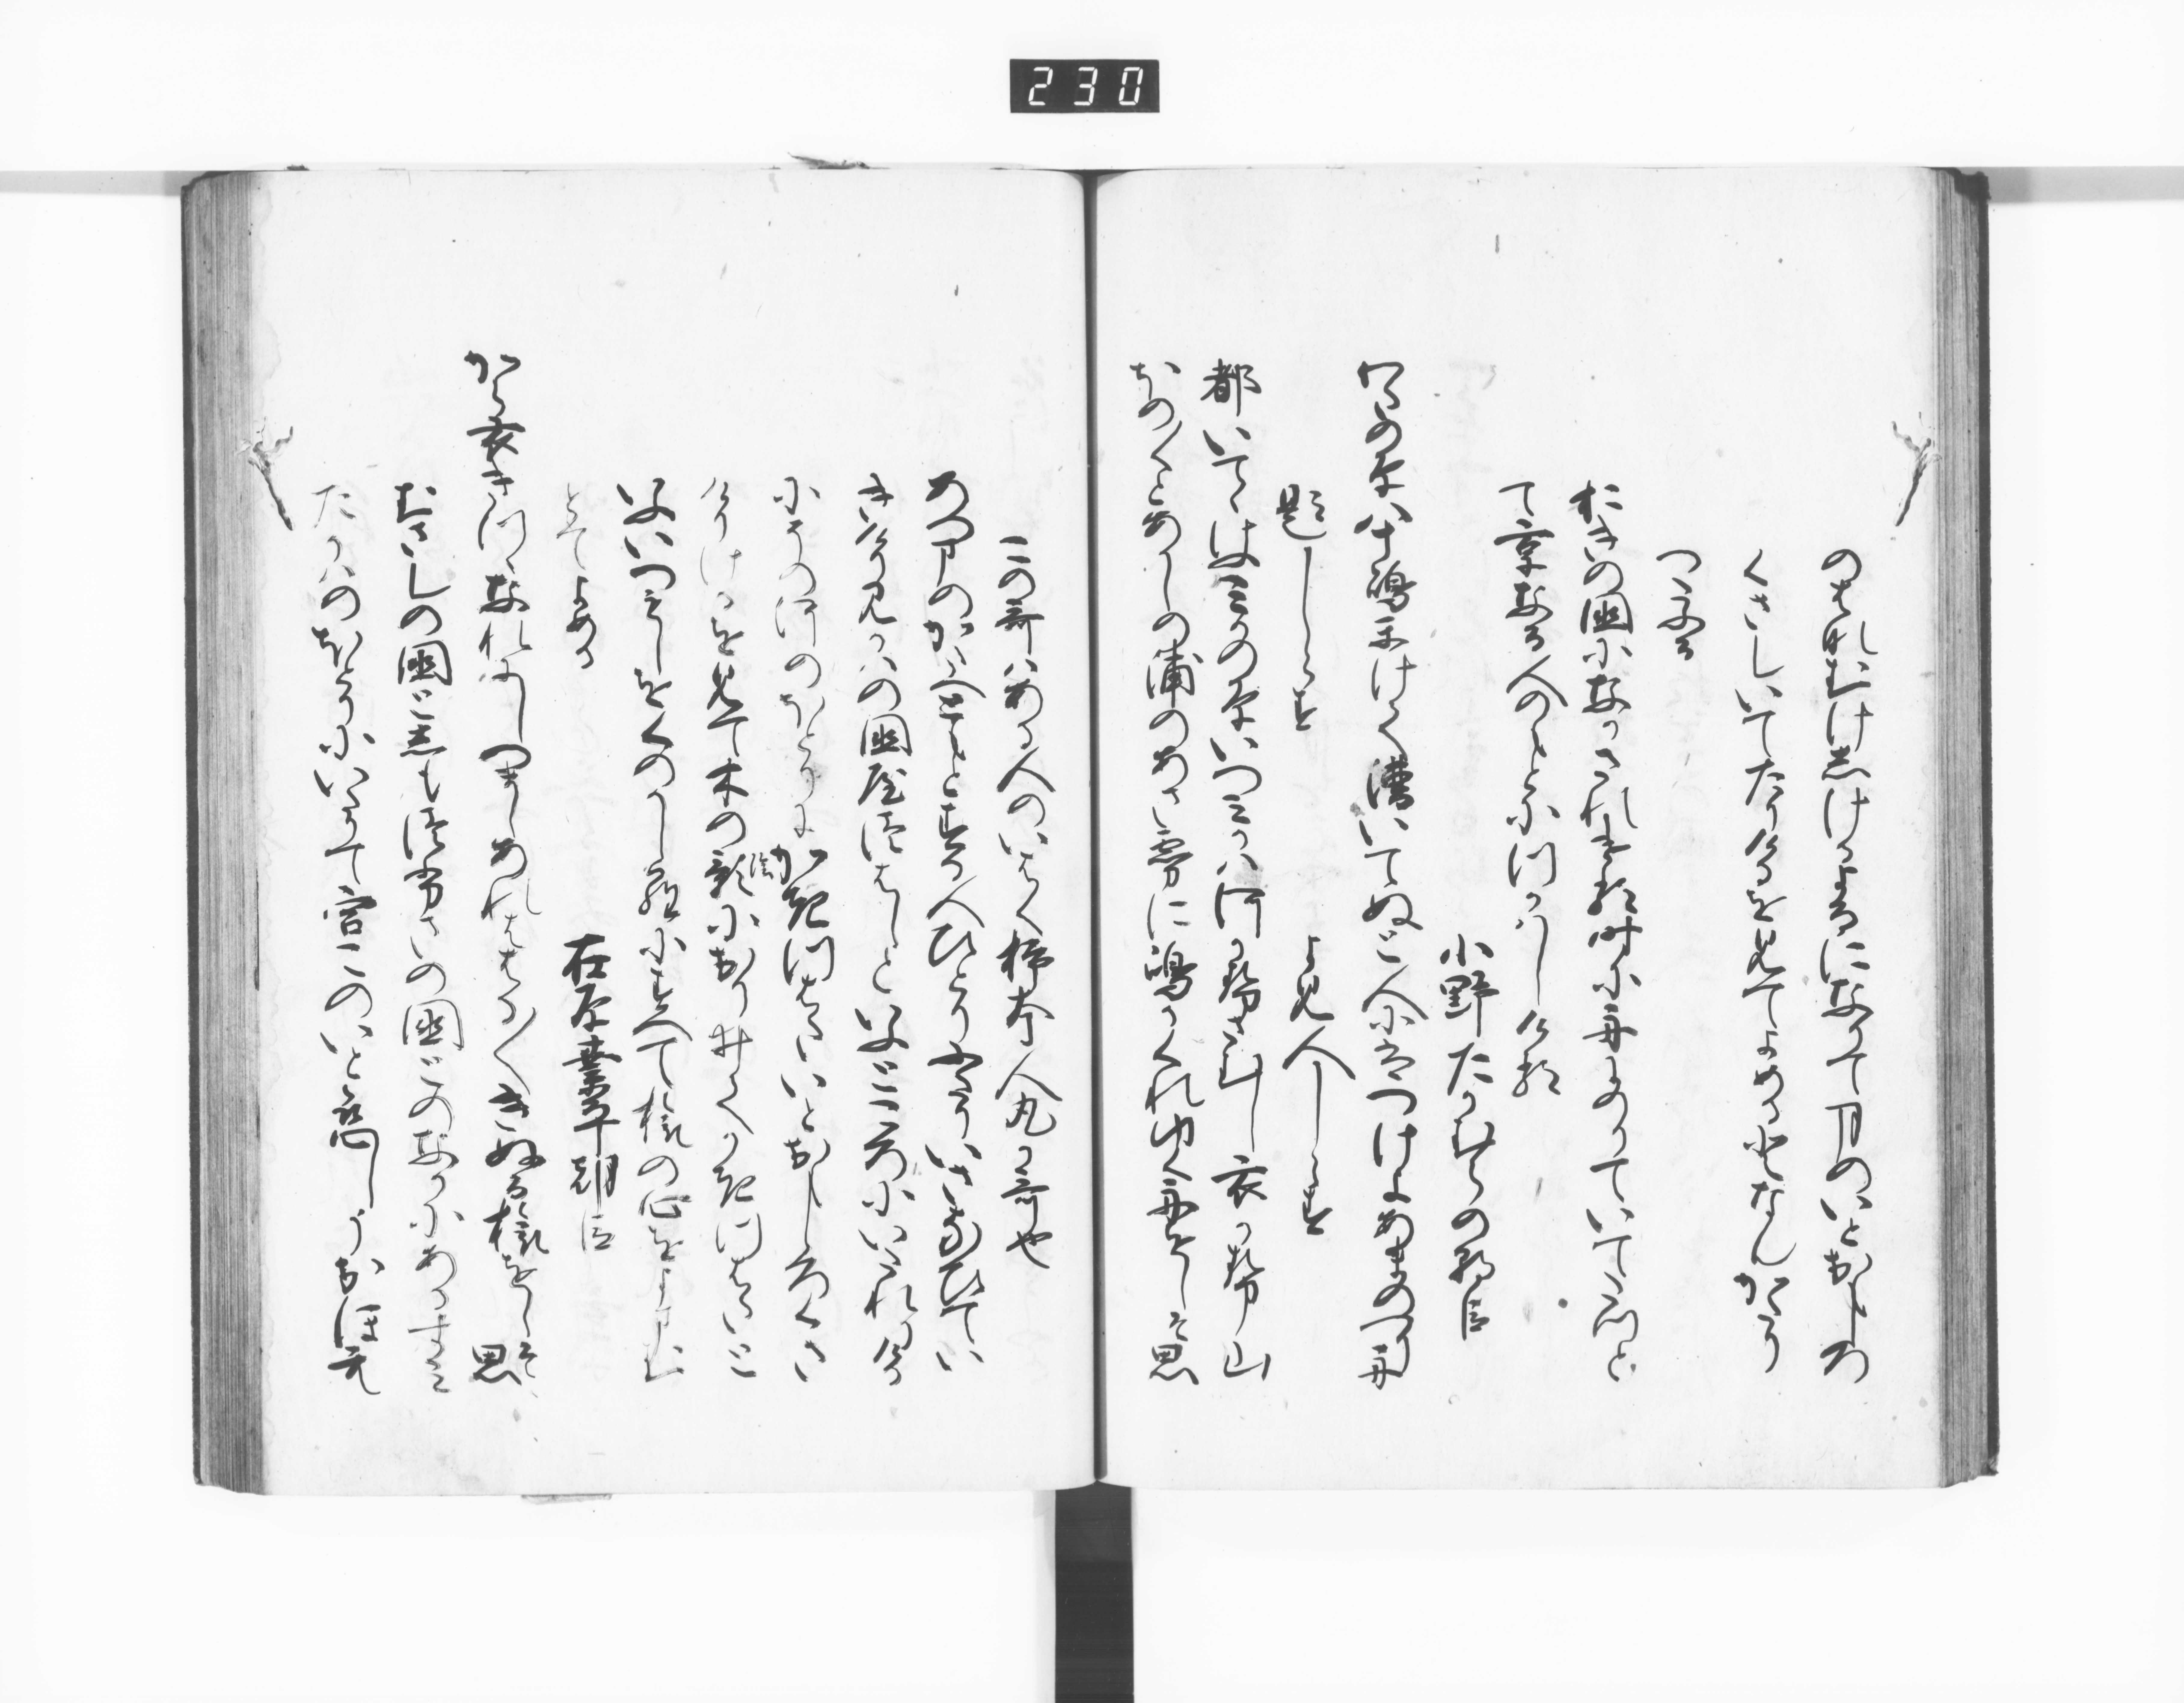 230
のはなむけしけりよるになりて月のいとおもしろ
くさしいてたりけるを見てよめるとなんかたり
つたふる
おきの国になかされける時に舟にのりていてたつと
て京なる人のもとにつかはしける
小野たかむらの朝臣
わたの原八十嶋かけて漕いてぬと人にはつけよあまの釣舟
題しらす　よみ人しらす
都いてゝけふみかの原いつみ河かは風さむし衣かせ山
ほの〳〵とあかしの浦のあさ霧に嶋かくれ行舟をしそ思
この哥はある人のいはく柿本人丸か哥也
あつまのかたへ友とする人ひとりふたりいさなひてい
きけりみかはの国八はしといふ所にいたれりける
にその河のほとりにかきつはたいとおもしろくさ
けりけるを見て木の影におりゐてかきつはたと
いふいつもしをくのかしらにすへて旅の心をよまむ
とてよめる　在原業平朝臣
から衣きつゝなれにしつましあれははる〳〵きぬる旅をしそ思
むさしの国としもつふさの国との中にあるすみ
た川のほとりにいたりて宮このいと恋しうおほえ